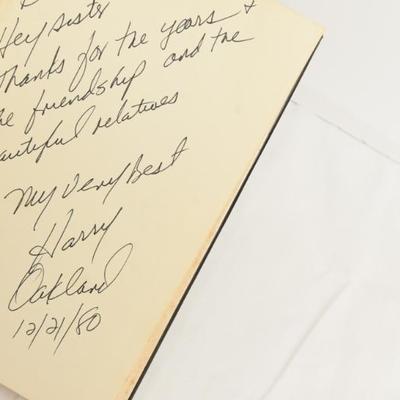 Hey Sister
Thanks for the years &
he friendship and the
autiful relatives
My Very Best
Harry
Oakland
12/21/80